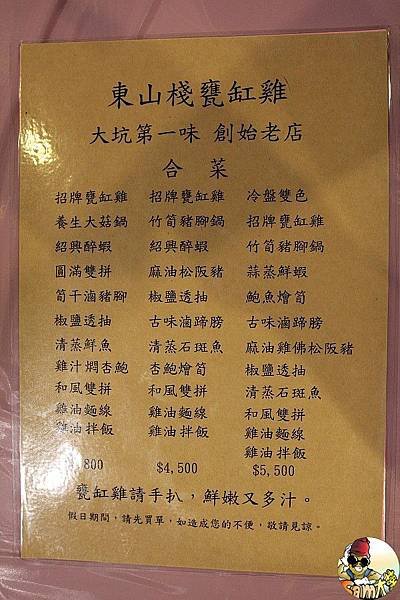 東山棧甕缸雞
大坑第一味 創始老店
合 菜
招牌甕缸雞 招牌甕缸雞 冷盤雙色
養生大菇鍋 竹筍豬腳鍋 招牌甕缸雞
紹興醉蝦 紹興醉蝦 竹筍豬腳鍋
圓滿雙拼 麻油松阪豬 蒜蒸鮮蝦
筍干滷豬腳 椒鹽透抽 鮑魚燴筍
椒鹽透抽 古味滷蹄膀 古味滷蹄膀
清蒸鮮魚 清蒸石斑魚 麻油雞佛松阪豬
雞汁燜杏鮑 杏鮑燴筍 椒鹽透抽
和風雙拼 和風雙拼 清蒸石斑魚
雞油麵線 雞油麵線 和風雙拼
雞油拌飯 雞油拌飯 雞油麵線
雞油拌飯
,800 $4,500 $5,500
甕缸雞請手扒，鮮嫩又多汁。
假日期間，請先買單，如造成您的不便，敬請見諒。
Sam